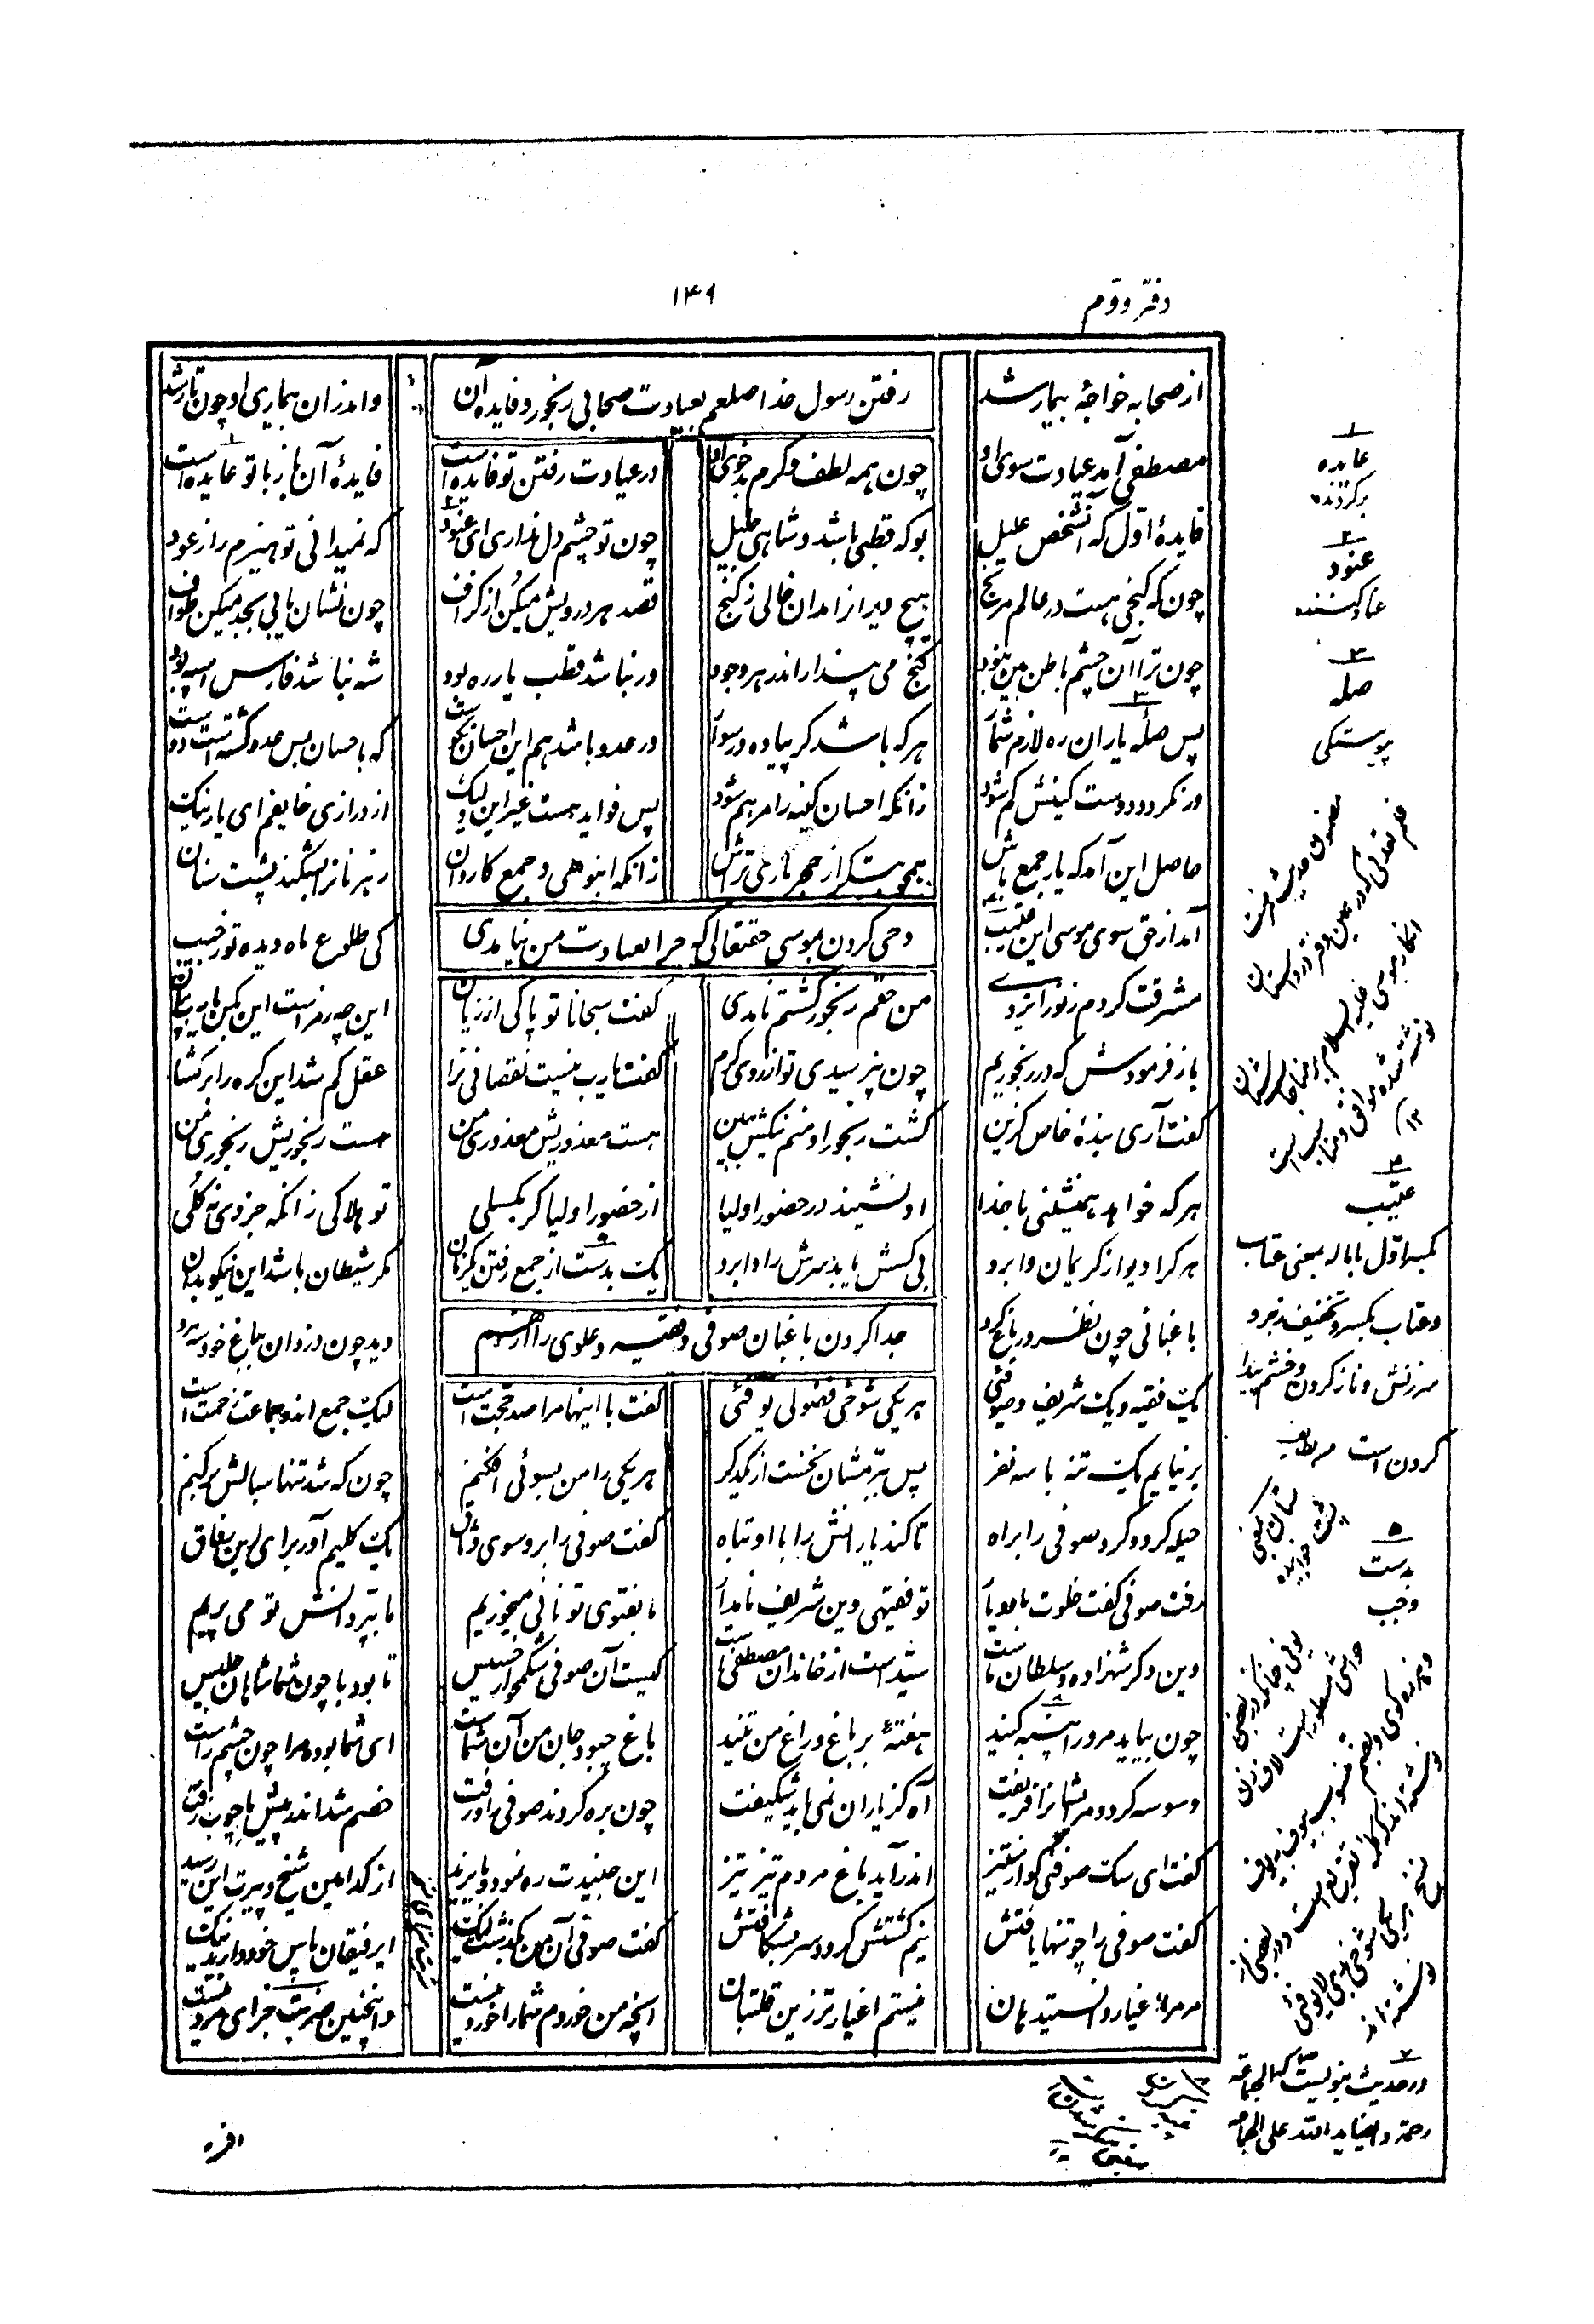 دفتر دوّم
۱۴۹
از صحابه خواجهٔ بیمار شد
رفتن رسول خدا صلعم بعیادت صحابی رنجور و فایده آن
واندران بیماری او چون تار شد
مصطفی آمد عیادت سوی او
چون همه لطف و کرم بد خوی او
در عیادت رفتن تو فایده است
فایدهٔ آن باز با تو عایده است
فایدهٔ اوّل که آنشخص علیل
بوکه قطبی باشد و شاهی جلیل
چون تو چشم دل نداری ای عنود
که نمیدانی تو هیزم را ز عود
چون که گنجی هست در عالم مرنج
هیچ ویرانرا مدان خالی ز گنج
قصد هر درویش میکن از گزاف
چون نشان یابی بجد میکن طواف
چون ترا آن چشم باطن بین نبود
گنج می پندار اندر هر وجود
ور نباشد قطب یار ره بود
شه نباشد فارس اسپه بود
پس صلهٔ یاران ره لازم شمار
هر که باشد گر پیاده ور سوار
ور عدو باشد هم این احسان نکوست
که باحسان بس عدو گشته است دوست
ور نگردد دوست کینش کم شود
زانکه احسان کینه را مرهم شود
پس فواید هست غیر این ولیک
از درازی خایفم ای یار نیک
حاصل این آمد که یار جمع باش
همچو بتگر از حجر یاری تراش
زانکه انبوهی و جمع کاروان
رهزنانرا بشکند پشت و سنان
آمد از حق سوی موسی این عتیب
وحی کردن بموسی حقتعالی که چرا بعیادت من نیامدی
کی طلوع ماه دیده تو ز جیب
مشرقت کردم ز نور ایزدی
من حقم رنجور گشتم نامدی
گفت سبحانا تو پاکی از زیان
این چه رمز است این بکن یارب بیان
باز فرمودش که در رنجوریم
چون نپرسیدی تو از روی کرم
گفت یارب نیست نقصانی ترا
عقل گم شد این گره را برگشا
گفت آری بندهٔ خاص گزین
گشت رنجور او منم نیکش ببین
هست معذوریش معذوری من
هست رنجوریش رنجوری من
هر که خواهد همنشینی با خدا
او نشیند در حضور اولیا
از حضور اولیا گر بگسلی
تو هلاکی زانکه جزوی نه کلی
هر کرا دیو از کریمان وا برد
بی کسش یابد سرش را وا برد
یک بدست از جمع رفتن یکزمان
مکر شیطان باشد این نیکو بدان
باغبانی چون نظر در باغ کرد
جدا کردن باغبان صوفی و فقیه و علوی را از هم
دید چون دزدان بباغ خود سه مرد
یک فقیه و یک شریف و صوفئی
هر یکی شوخی فضولی یوفئی
گفت با اینها مرا صد حجت است
لیک جمع اند و جماعت زحمت است
بر نیایم یک تنه با سه نفر
پس ببرّمشان نخست از یکدگر
هر یکی را من بسوئی افکنم
چون که شد تنها سبالش بر کنم
حیله کرد و کرد صوفی را براه
تا کند یارانش را با او تباه
گفت صوفی را برو سوی وثاق
یک گلیم آور برای این رفاق
رفت صوفی گفت خلوت با دو یار
تو فقیهی وین شریف نامدار
ما بفتوی تو نانی میخوریم
ما بپرّ دانش تو می پریم
وین دگر شهزاده و سلطان ماست
سیّد است از خاندان مصطفی است
کیست آن صوفی شکمخوار خسیس
تا بود با چون شما شاهان جلیس
چون بیاید مر ورا پنبه کنید
هفتهٔ بر باغ و راغ من تنید
باغ چبود جان من آن شماست
ای شما بوده مرا چون چشم راست
وسوسه کرد و مر ایشانرا فریفت
آه کز یاران نمی باید شکیفت
چون بره کردند صوفی را و رفت
خصم شد اندر پیش با چوب زفت
گفت ای سگ صوفئی کو از ستیز
اندر آید باغ مردم تیز تیز
این جنیدت ره نمود و بایزید
از کدامین شیخ و پیرت این رسید
گفت صوفی را چو تنها یافتش
نیم کشتش کرد و سر بشکافتش
گفت صوفی آن من بگذشت لیک
ای رفیقان پاس خود دارید نیک
مر مرا اغیار دانستید هان
نیستم اغیار تر زین قلتبان
آنچه من خوردم شما را خوردنیست
وانچنین ضربت جزای هر دنیست
۱
عایده
برگردنده
۲
عنود
عناد کننده
۳
صله
پیوستگی
۴
عتیب
بکسر اوّل با باله بمعنی عتاب
و عتاب بکسر و تخفیف
سرزنش و ناز کردن و خشم پیدا
کردن است
۵
بدست
وجب
۷
در حدیث نبویست که الجماعة
رحمة و ایضا ید الله علی الجماعة
افره